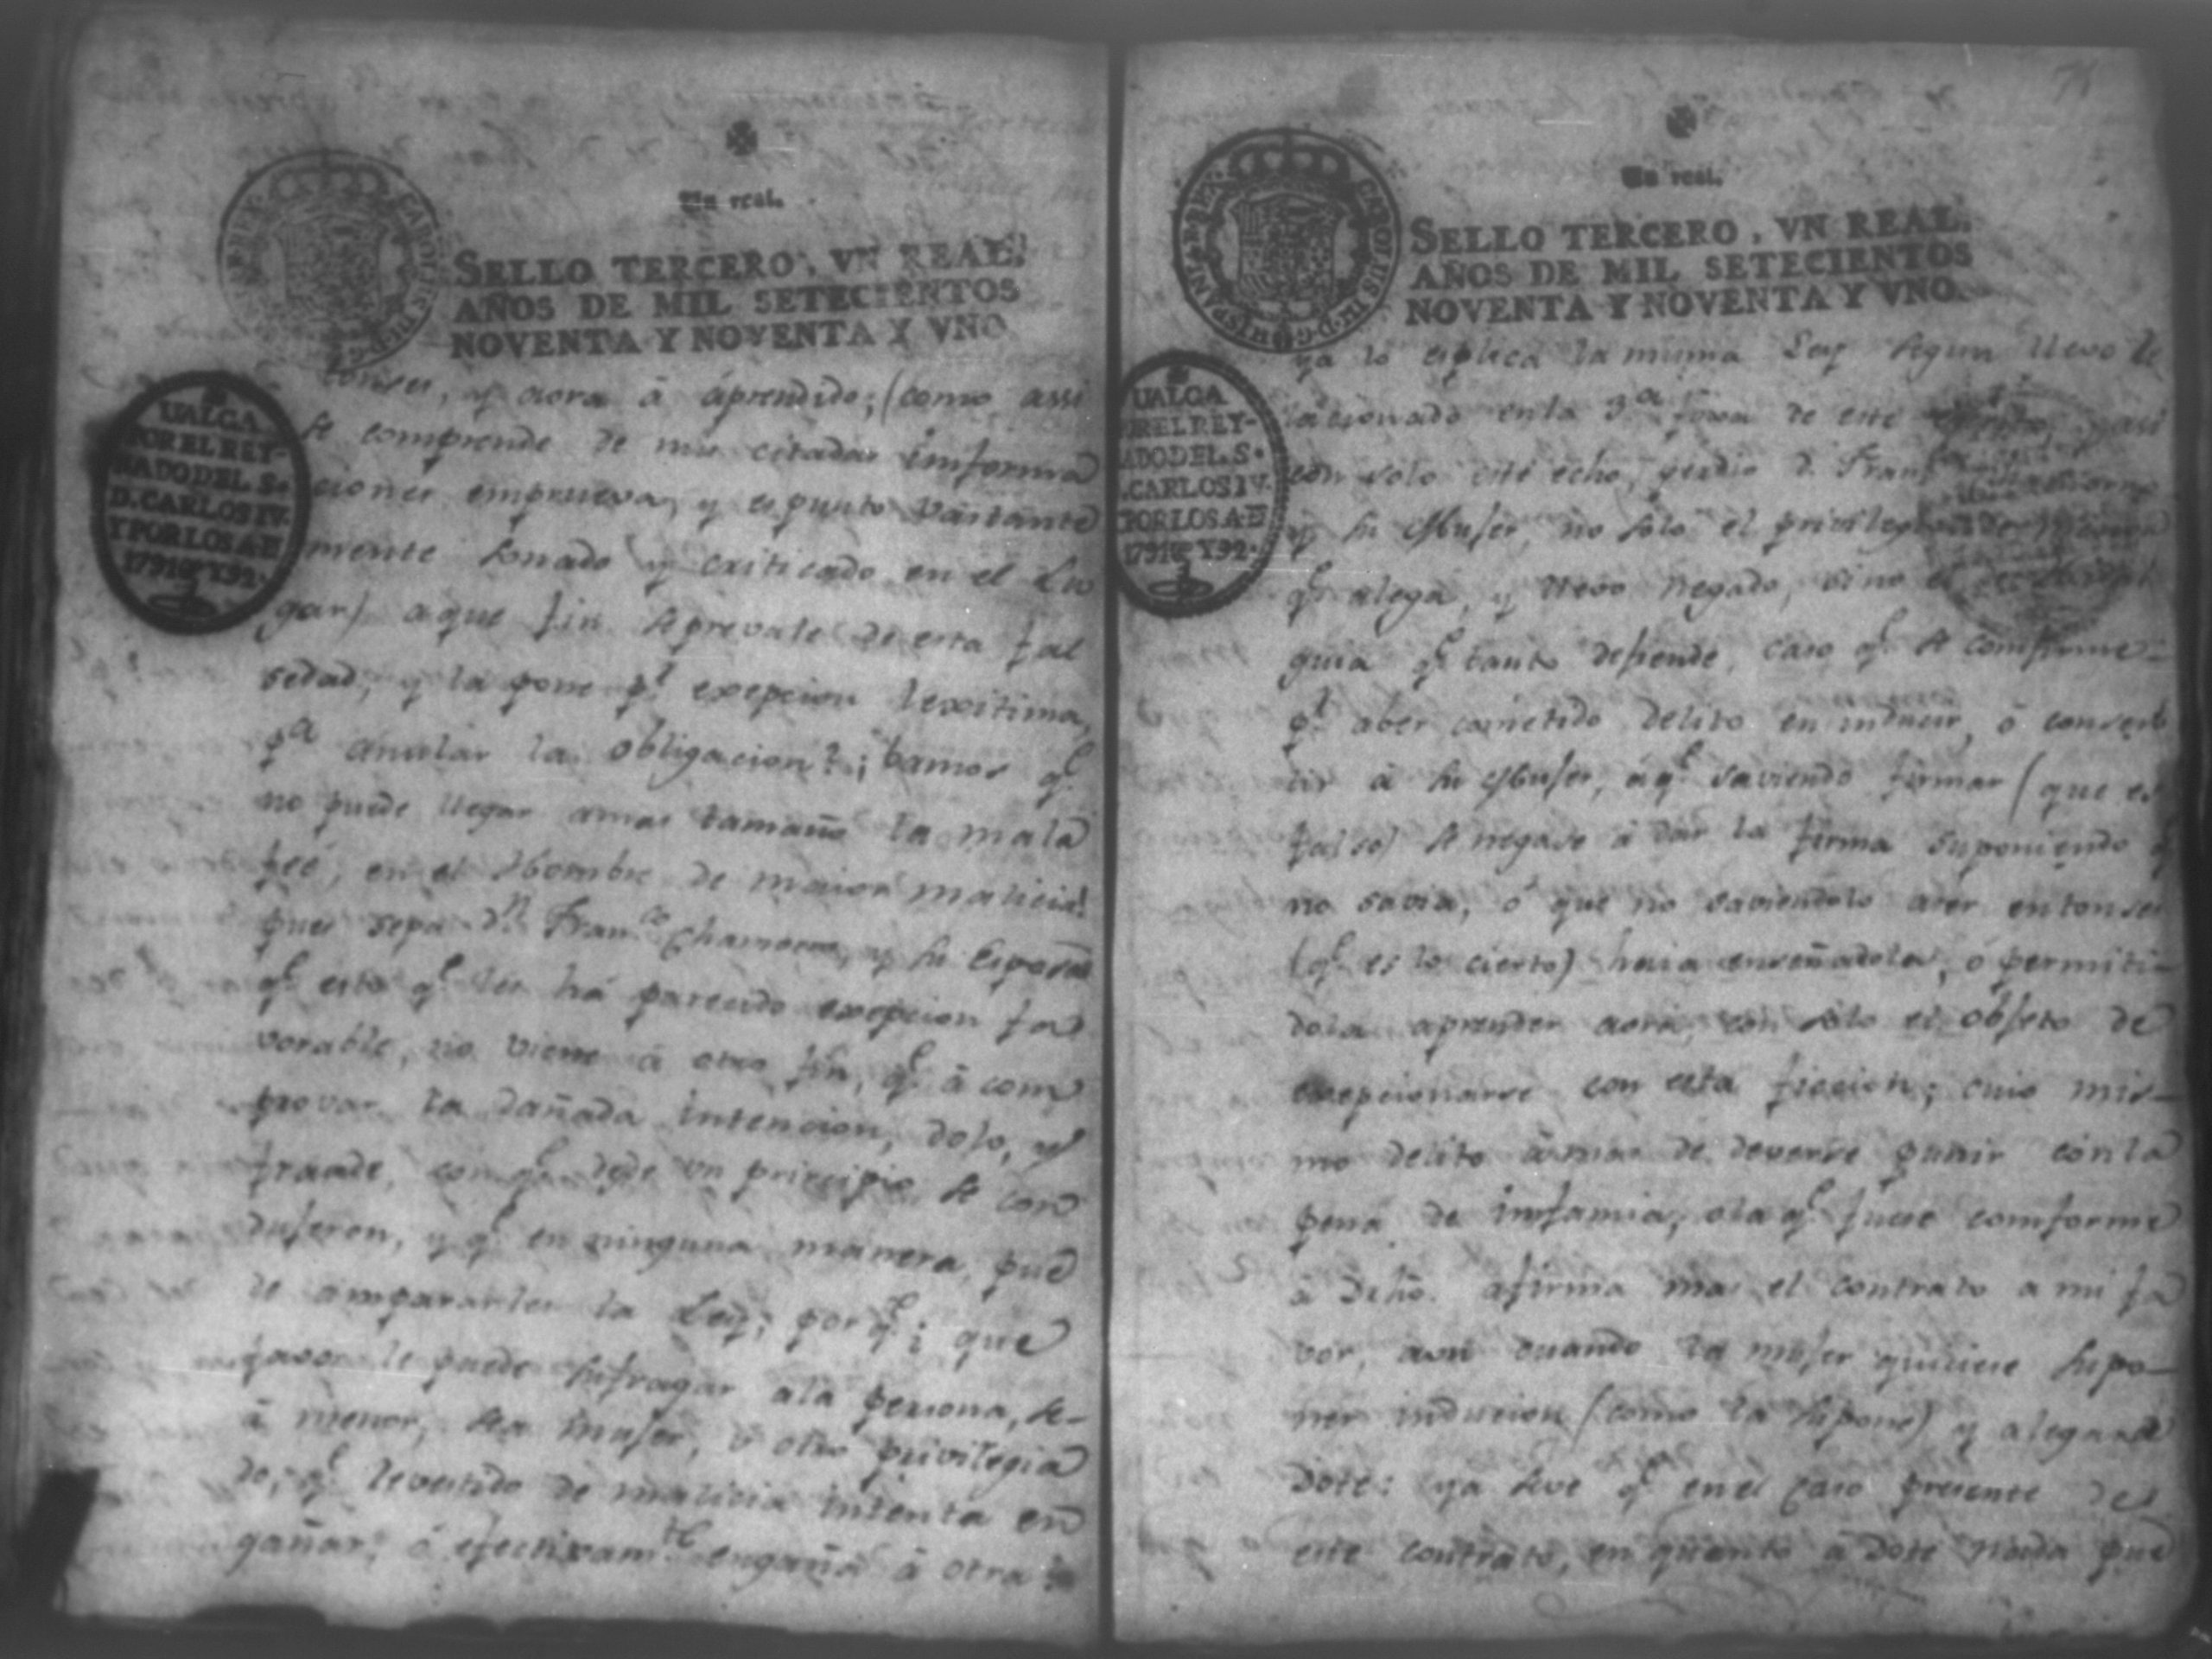 Un real.
CAROLUS III D G HISPANI REX
SELLO TERCERO, VN REAL,
AÑOS DE MIL SETECIENTOS
NOVENTA Y NOVENTA Y VNO
UALGA
POR EL REY-
NADO DEL S.
D. CARLOS IV.
Y POR LOS A.
1791 Y 92.
tonses, y aora á áprendido; (como assi
se comprende de mis citadas imforma
ciones emprueva, y es punto vastante
mente sonado y criticado en el Lu
gar) aque fin se prevale de esta fal
sedad, y la pone pr. exepcion lexitima,
pa. anular la obligacion?; bamos qe.
no puede llegar amas tamaño la mala
feé, en el Hombre de maior malicia:
pues sepa Dn. Franco. Chamorro, y su Esposa
qe. esto qe. les há parecido exepcion fa
vorable, no viene á otro fin, qe. á com
provar la dañada intencion, dolo, y
fraude, con qe. desde un principio se con
dujeron, y qe. en ninguna manera pue
de ampararles la Ley; porqe. ¿ que
favor le puede sufragar ala persona, se-
á menor, sea muger, ú otro privilegia
do, qe. revestido de malicia intenta en
gañar, ó efectivamte. engaña á otra
78
Un real.
CAROLUS III D G HISPANI REX
SELLO TERCERO, VN REAL,
AÑOS DE MIL SETECIENTOS
NOVENTA Y NOVENTA Y VNO.
UALGA
POR EL REY-
NADO DEL S.
D. CARLOS IV.
POR LOS A.
1791 Y 92.
ya lo esplica la misma Ley segun llevo re
lacionado enla 3a. foxa de este escrito, y assi
con solo este echo, perdio D. Franco.
y su Muger, no solo el privilegio
qe. alega, y llevo negado, sino el
guia qe. tanto defiende, caso qe. se comfirme
pr. aber cometido delito en inducir, ó consen
tir á su Muger, áqe. saviendo firmar (que es
falso) se negase á dar la firma suponiendo qe.
no savia, ó que no saviendolo aser entonses
(qe. es lo cierto) haia enseñadola, ó permiti-
dola aprender aora, con solo el objeto de
exepcionarse con esta ficcion; cuio mis-
mo delito ámas de deverse punir conla
pena de imfamia, ola qe. fuese comforme
á Dxho. afirma mas el contrato a mi fa
vor, aun cuando la muger quiciese supo-
ner inducion (como la supone) y alegara
Dote: ya seve qe. enel Caso presente de
este contrato, en quanto á Dote nada pue